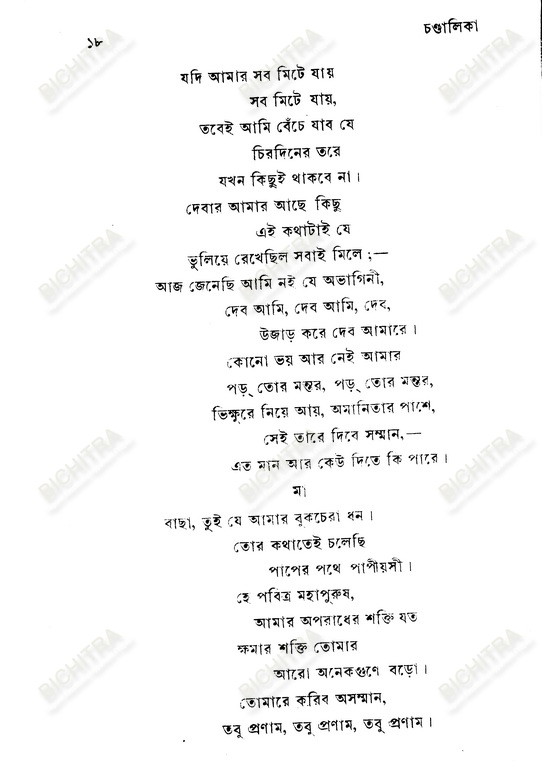 চণ্ডালিকা
১৮
যদি আমার সব মিটে যায়
সব মিটে যায়,
তবেই আমি বেঁচে যাব যে
চিরদিনের তরে
যখন কিছুই থাকবে না।
দেবার আমার আছে কিছু
এই কথাটাই যে
ভুলিয়ে রেখেছিল সবাই মিলে ;—
আজ জেনেছি আমি নই যে অভাগিনী,
দেব আমি, দেব আমি, দেব,
উজাড় করে দেব আমারে।
কোনো ভয় আর নেই আমার
পড়্ তোর মন্তর, পড়্ তোর মন্তর,
ভিক্ষুরে নিয়ে আয়, অমানিতার পাশে,
সেই তারে দিবে সম্মান,—
এত মান আর কেউ দিতে কি পারে।
মা
বাছা, তুই যে আমার বুকচেরা ধন।
তোর কথাতেই চলেছি
পাপের পথে পাপীয়সী।
হে পবিত্র মহাপুরুষ,
আমার অপরাধের শক্তি যত
ক্ষমার শক্তি তোমার
আরো অনেকগুণে বড়ো।
তোমারে করিব অসম্মান,
তবু প্রণাম, তবু প্রণাম, তবু প্রণাম।
BICHITRA
BICHITRA
BICHITRA
BICHITRA
BICHITRA
BICHITRA
BICHITRA
BICHITRA